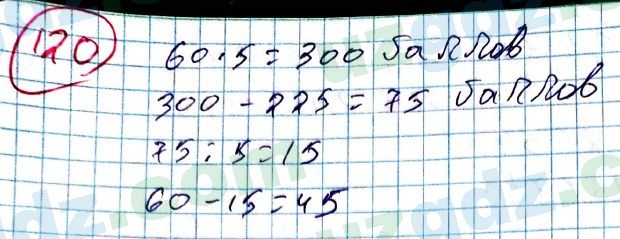 120
60·5=300 баллов
300-225=75 баллов
75:5=15
60-15=45